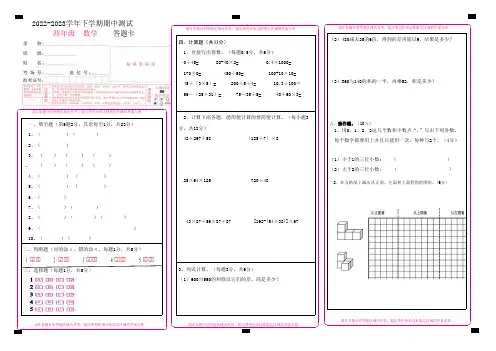 2022-2023学年下学期期中测试
四年级 数学 答题卡
学 校：
班 级：
姓 名：
考 场 号： 座 位 号：
准考证号：
贴条形码区
请在各题目的答题区域内作答，超出答题区域的答案无效
一、填空题（第6题2分，其余每空1分，共23分）
1、（ ）（ ）
（ ）
2、（ ）
3、（ ） （ ） （ ） （ ）
（ ） （ ） （ ）
4、（ ）（ ）
5、（ ） （ ）
6、（ ）
7、（ ）（ ）
8、（ ） （ ）（ ）
9、（ ）
10、（ ） （ ）
二、判断题（对的涂√，错的涂×，每题1分，共5分）
三、选择题（每题1分，共5分）
1 [A] [B] [C] [D]
2 [A] [B] [C] [D]
3 [A] [B] [C] [D]
4 [A] [B] [C] [D]
5 [A] [B] [C] [D]
请在各题目的答题区域内作答，超出答题区域的答案无效
请在各题目的答题区域内作答，超出答题区域的答案无效
四、计算题（共33分）
1、直接写出得数。（每题0.5分，共6分）
0÷45= 80×40×2= 0.4×1000=
170×0= 450÷50= 100×10÷10=
45÷（3×5）= 200×5÷4= 10.3÷100=
56－（25＋31）= 75－35÷5= 40＋60×3=
2、计算下面各题，能简便计算的要简便计算。（每小题3分，共18分）
48＋297＋52 （125＋7）×8
25×64×125 720÷48
43×87＋56×87＋87 [192-(54＋38)]×67
3、列式计算。（每题3分，共9分）
（1）680与560的和除以它们的差，商是多少？
请在各题目的答题区域内作答，超出答题区域的答案无效
请在各题目的答题区域内作答，超出答题区域的答案无效
（2）420减去25的6倍，再列的差再除以6，结果是多少？
（3）360与140的差的一半，再乘82，积是多少？
五、操作题。（10分）
1、用0、1、2、3这几个数和小数点“.”写出下列各数，每个数字都要用上并且只能用一次，每种写2个。（4分）
（1）小于1的三位小数： （ ）
（2）大于2的三位小数： （ ）
2、在方格纸上画出从正面、左面和上面看到的图形。（6分）
从正面看 从上面看 从左面看
请在各题目的答题区域内作答，超出答题区域的答案无效